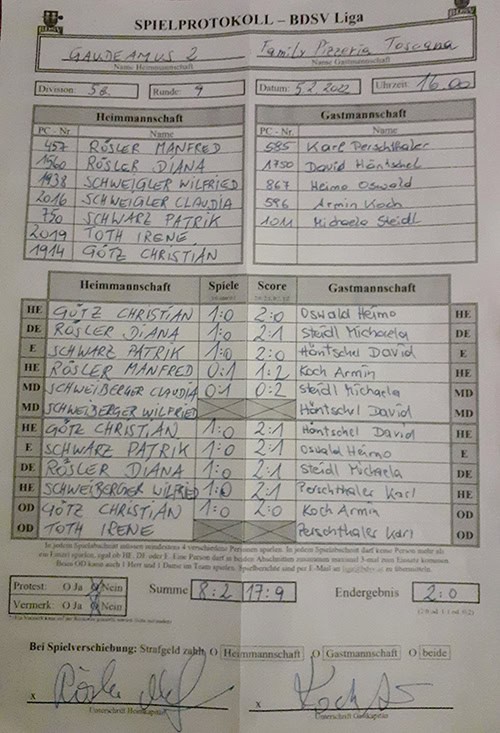 SPIELPROTOKOLL – BDSV Liga
GAUDEAMUS 2 Family Pizzeria Toscana
Name Heimmannschaft Name Gastmannschaft
Division: 5B Runde: 9 Datum: 5.2.2022 Uhrzeit: 16.00
Heimmannschaft Gastmannschaft
PC - Nr. Name PC - Nr. Name
457 RÖSLER MANFRED 585 Karl Perschthaler
1560 RÖSLER DIANA 1750 David Häntschel
1938 SCHWEIGLER WILFRIED 867 Heimo Oswald
2016 SCHWEIGLER CLAUDIA 596 Armin Koch
750 SCHWARZ PATRIK 1011 Michaela Steidl
2019 TOTH IRENE
1914 GÖTZ CHRISTIAN
Heimmannschaft Spiele Score Gastmannschaft
HE GÖTZ CHRISTIAN 1:0 2:0 Oswald Heimo HE
DE RÖSLER DIANA 1:0 2:1 Steidl Michaela DE
E SCHWARZ PATRIK 1:0 2:0 Häntschel David E
HE RÖSLER MANFRED 0:1 1:2 Koch Armin HE
MD SCHWEIBERGER CLAUDIA 0:1 0:2 Steidl Michaela MD
MD SCHWEIBERGER WILFRIED Häntschel David MD
HE GÖTZ CHRISTIAN 1:0 2:1 Häntschel David HE
E SCHWARZ PATRIK 1:0 2:1 Oswald Heimo E
DE RÖSLER DIANA 1:0 2:1 Steidl Michaela DE
HE SCHWEIBERGER WILFRIED 1:0 2:1 Perschthaler Karl HE
OD GÖTZ CHRISTIAN 1:0 2:0 Koch Armin OD
OD TOTH IRENE Perschthaler Karl OD
In jedem Spielabschnitt müssen mindestens 4 verschiedene Personen spielen. In jedem Spielabschnitt darf keine Person mehr als
ein Einzel spielen, egal ob HE, DE oder E. Eine Person darf in beiden Abschnitten zusammen maximal 3-mal zum Einsatz kommen.
Beim OD kann auch 1 Herr und 1 Dame im Team spielen. Spielberichte sind per E-Mail an liga@bdsv.at zu übermitteln.
Protest: O Ja O Nein Summe 8:2 17:9 Endergebnis 2:0
Vermerk: O Ja O Nein
Bei Spielverschiebung: Strafgeld zahlt O Heimmannschaft O Gastmannschaft O beide
x x
Unterschrift Heimkapitän Unterschrift Gastkapitän